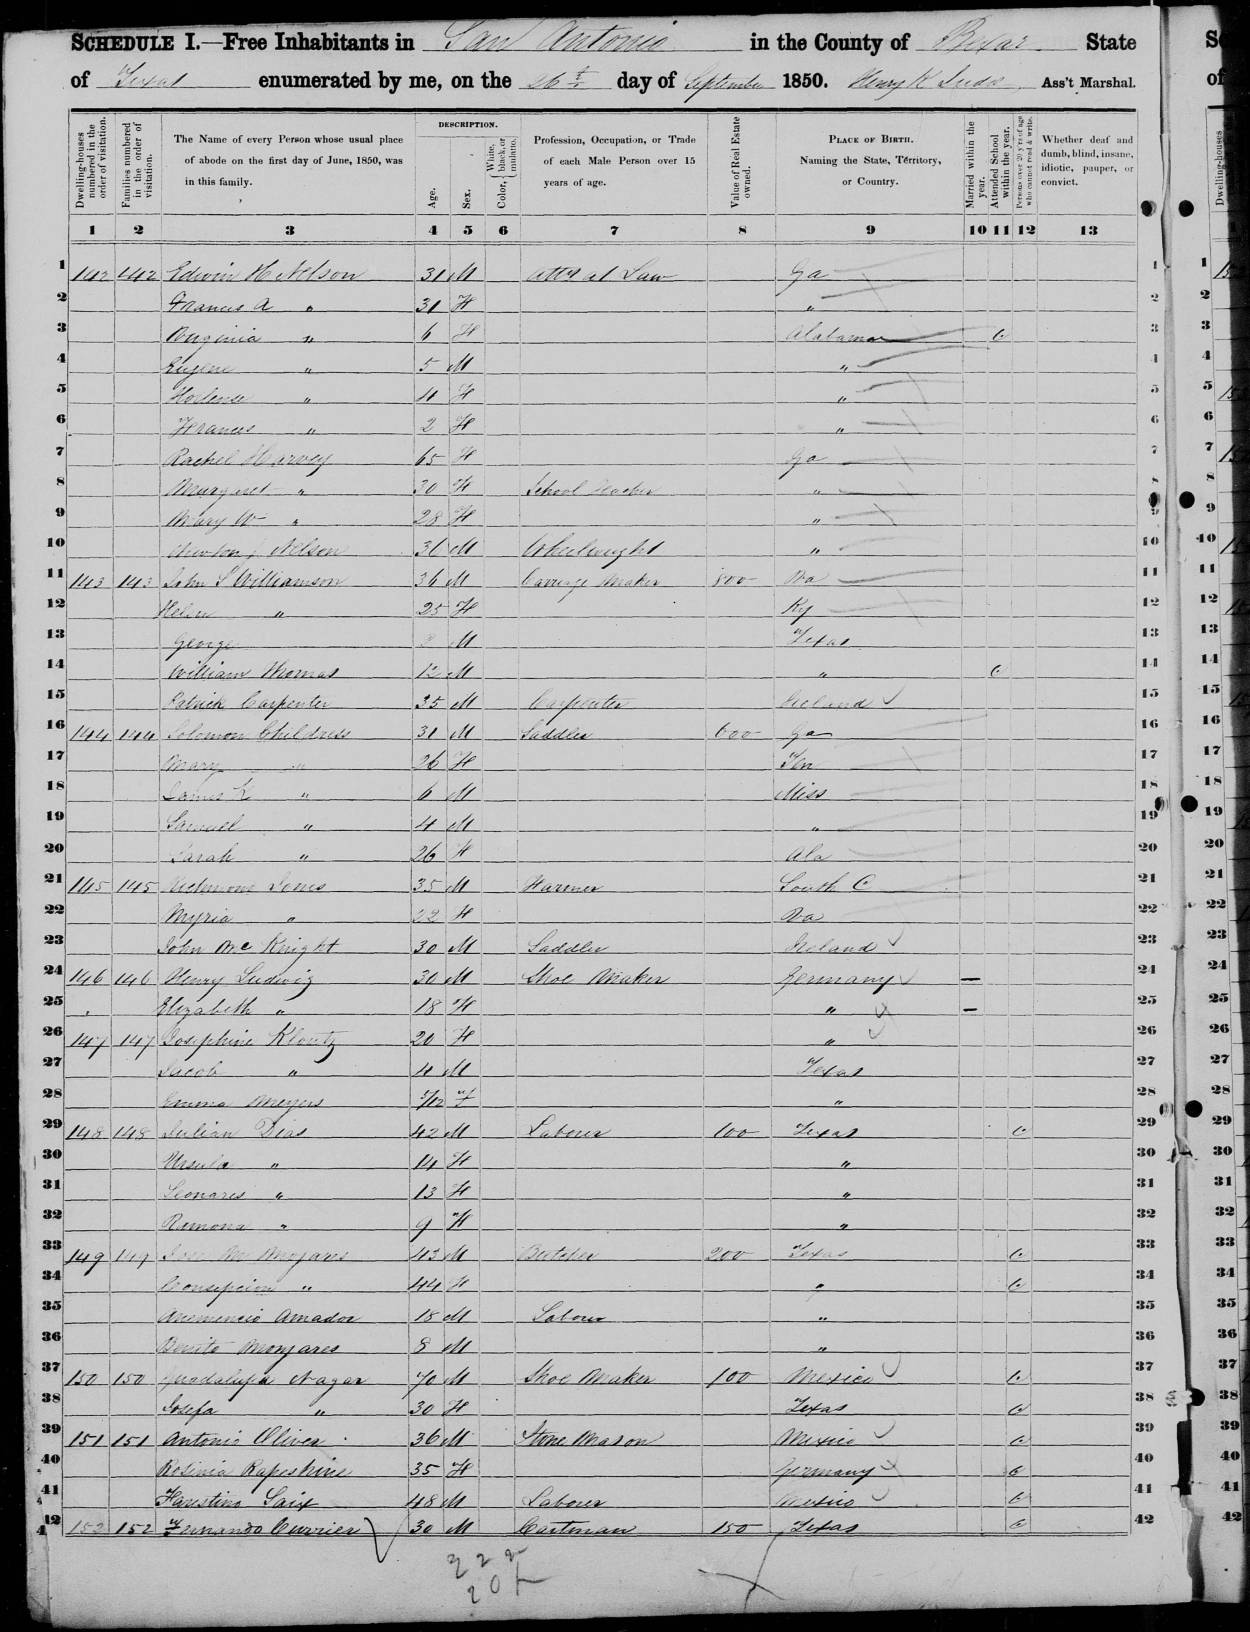 SCHEDULE I.—Free Inhabitants in San Antonio in the County of Bexar State
of Texas enumerated by me, on the 26th day of September 1850. Henry K Ass't Marshal.
Dwelling-houses numbered in the order of visitation.
Families numbered in the order of visitation.
The Name of every Person whose usual place of abode on the first day of June, 1850, was in this family.
DESCRIPTION.
Age.
Sex.
Color, White, black, or mulatto.
Profession, Occupation, or Trade of each Male Person over 15 years of age.
Value of Real Estate owned.
PLACE OF BIRTH. Naming the State, Territory, or Country.
Married within the year.
Attended School within the year.
Persons over 20 y'rs of age who cannot read & write.
Whether deaf and dumb, blind, insane, idiotic, pauper, or convict.
1 2 3 4 5 6 7 8 9 10 11 12 13
1 142 142 Edwin H Nelson 31 M Atty at Law Ga 1
2 Frances A " 31 F " 2
3 Virginia " 6 F Alabama 3
4 Eugene " 5 M " 4
5 Hortense " 4 F " 5
6 Frances " 2 F " 6
7 Rachel Harvey 65 F Ga 7
8 Margaret " 30 F School Teacher " 8
9 Mary W " 28 F " 9
10 Newton J Nelson 36 M Wheelwright " 10
11 143 143 John S Williamson 36 M Carriage Maker 800 Va 11
12 Helen " 25 F Ky 12
13 George M Texas 13
14 William Thomas 12 M " 14
15 Patrick Carpenter 35 M Carpenter Ireland 15
16 144 144 Solomon Childress 31 M Saddler 600 Ga 16
17 Mary " 26 F Ten 17
18 James K " 6 M Miss 18
19 Samuel " 4 M " 19
20 Sarah " 26 F Ala 20
21 145 145 Richmond Jones 35 M Farmer South C 21
22 Myria " 22 F Va 22
23 John McKnight 30 M Saddler Ireland 23
24 146 146 Henry Ludwig 30 M Shoe Maker Germany 24
25 Elizabeth " 18 F " 25
26 147 147 Josephine Klontz 20 F " 26
27 Jacob " 4 M Texas 27
28 Emma Meyers /12 f " 28
29 148 148 Julian Dias 42 M Laborer 100 Texas 29
30 Ursula " 14 F " 30
31 Leonares " 13 F " 31
32 Ramona " 9 F " 32
33 149 149 Jose M Monjares 43 M Butcher 200 Texas 33
34 Consepcion " 44 F " 34
35 Amador 18 M Laborer " 35
36 Benito Monjares 8 M " 36
37 150 150 Guadalupa Nagar 70 M Shoe Maker 100 Mexico 37
38 Josefa " 30 F Texas 38
39 151 151 Antonio Oliver 36 M Stone Mason Mexico 39
40 Rosinia Rapeshine 35 F Germany 40
41 Faustino Saix 48 M Laborer Mexico 41
42 152 152 Fernando Currier 30 M Cartman 150 Texas 42
222
20